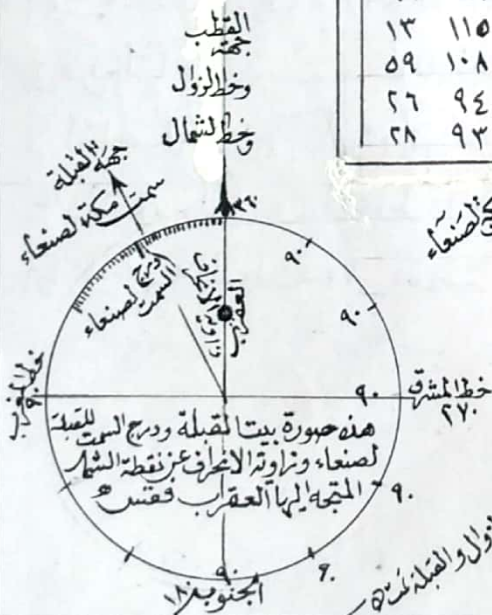 ١٣ ١١٥
٥٩ ١٠٨
٢٦ ٩٤
٢٨ ٩٣
القطب
جهة
وخط الزوال
وخط الشمال
جهة القبلة
سمت مكة لصنعاء
لصنعاء
٣٦٠
درج السمت لصنعاء
زاوية الانحراف
العقرب
٩٠
٩٠
خط المشرق
٢٧٠
٩٠
خط المغرب
٩٠
هذه صورة بيت القبلة ودرج السمت للقبلة
لصنعاء وزاوية الانحراف عن نقطة الشمال
المتجه إليها العقرب فقس
٩٠
٦٠
٩٠
الجنوب ١٨٠
والقبلة تمت